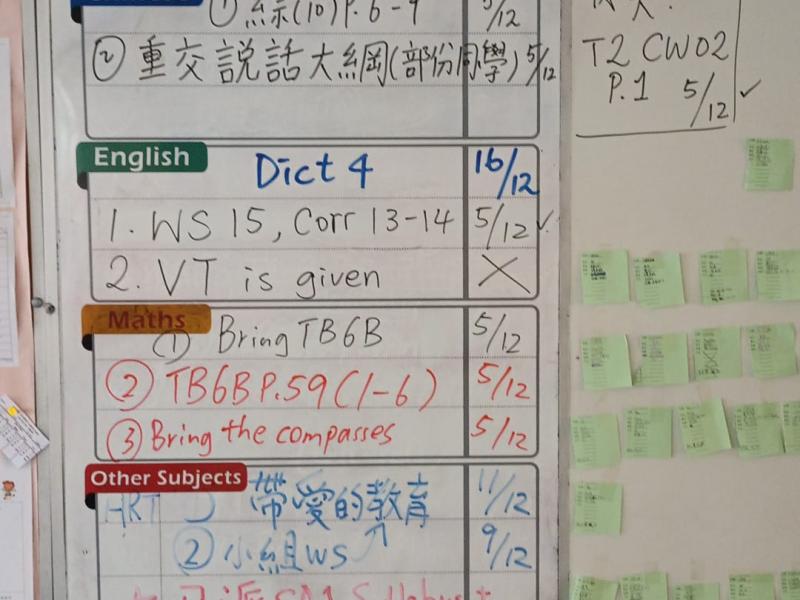 P.6-9 5/12
② 重交説話大綱(部份同學) 5/12
English Dict 4 16/12
1. WS 15, Corr 13-14 5/12 ✓
2. VT is given ×
Maths
① Bring TB6B 5/12
② TB6B P.59(1-6) 5/12
③ Bring the compasses 5/12
Other Subjects
ART 帶愛的教育 11/12
② 小組WS ↗ 9/12
已派
T2 CW02
P.1 5/12 ✓